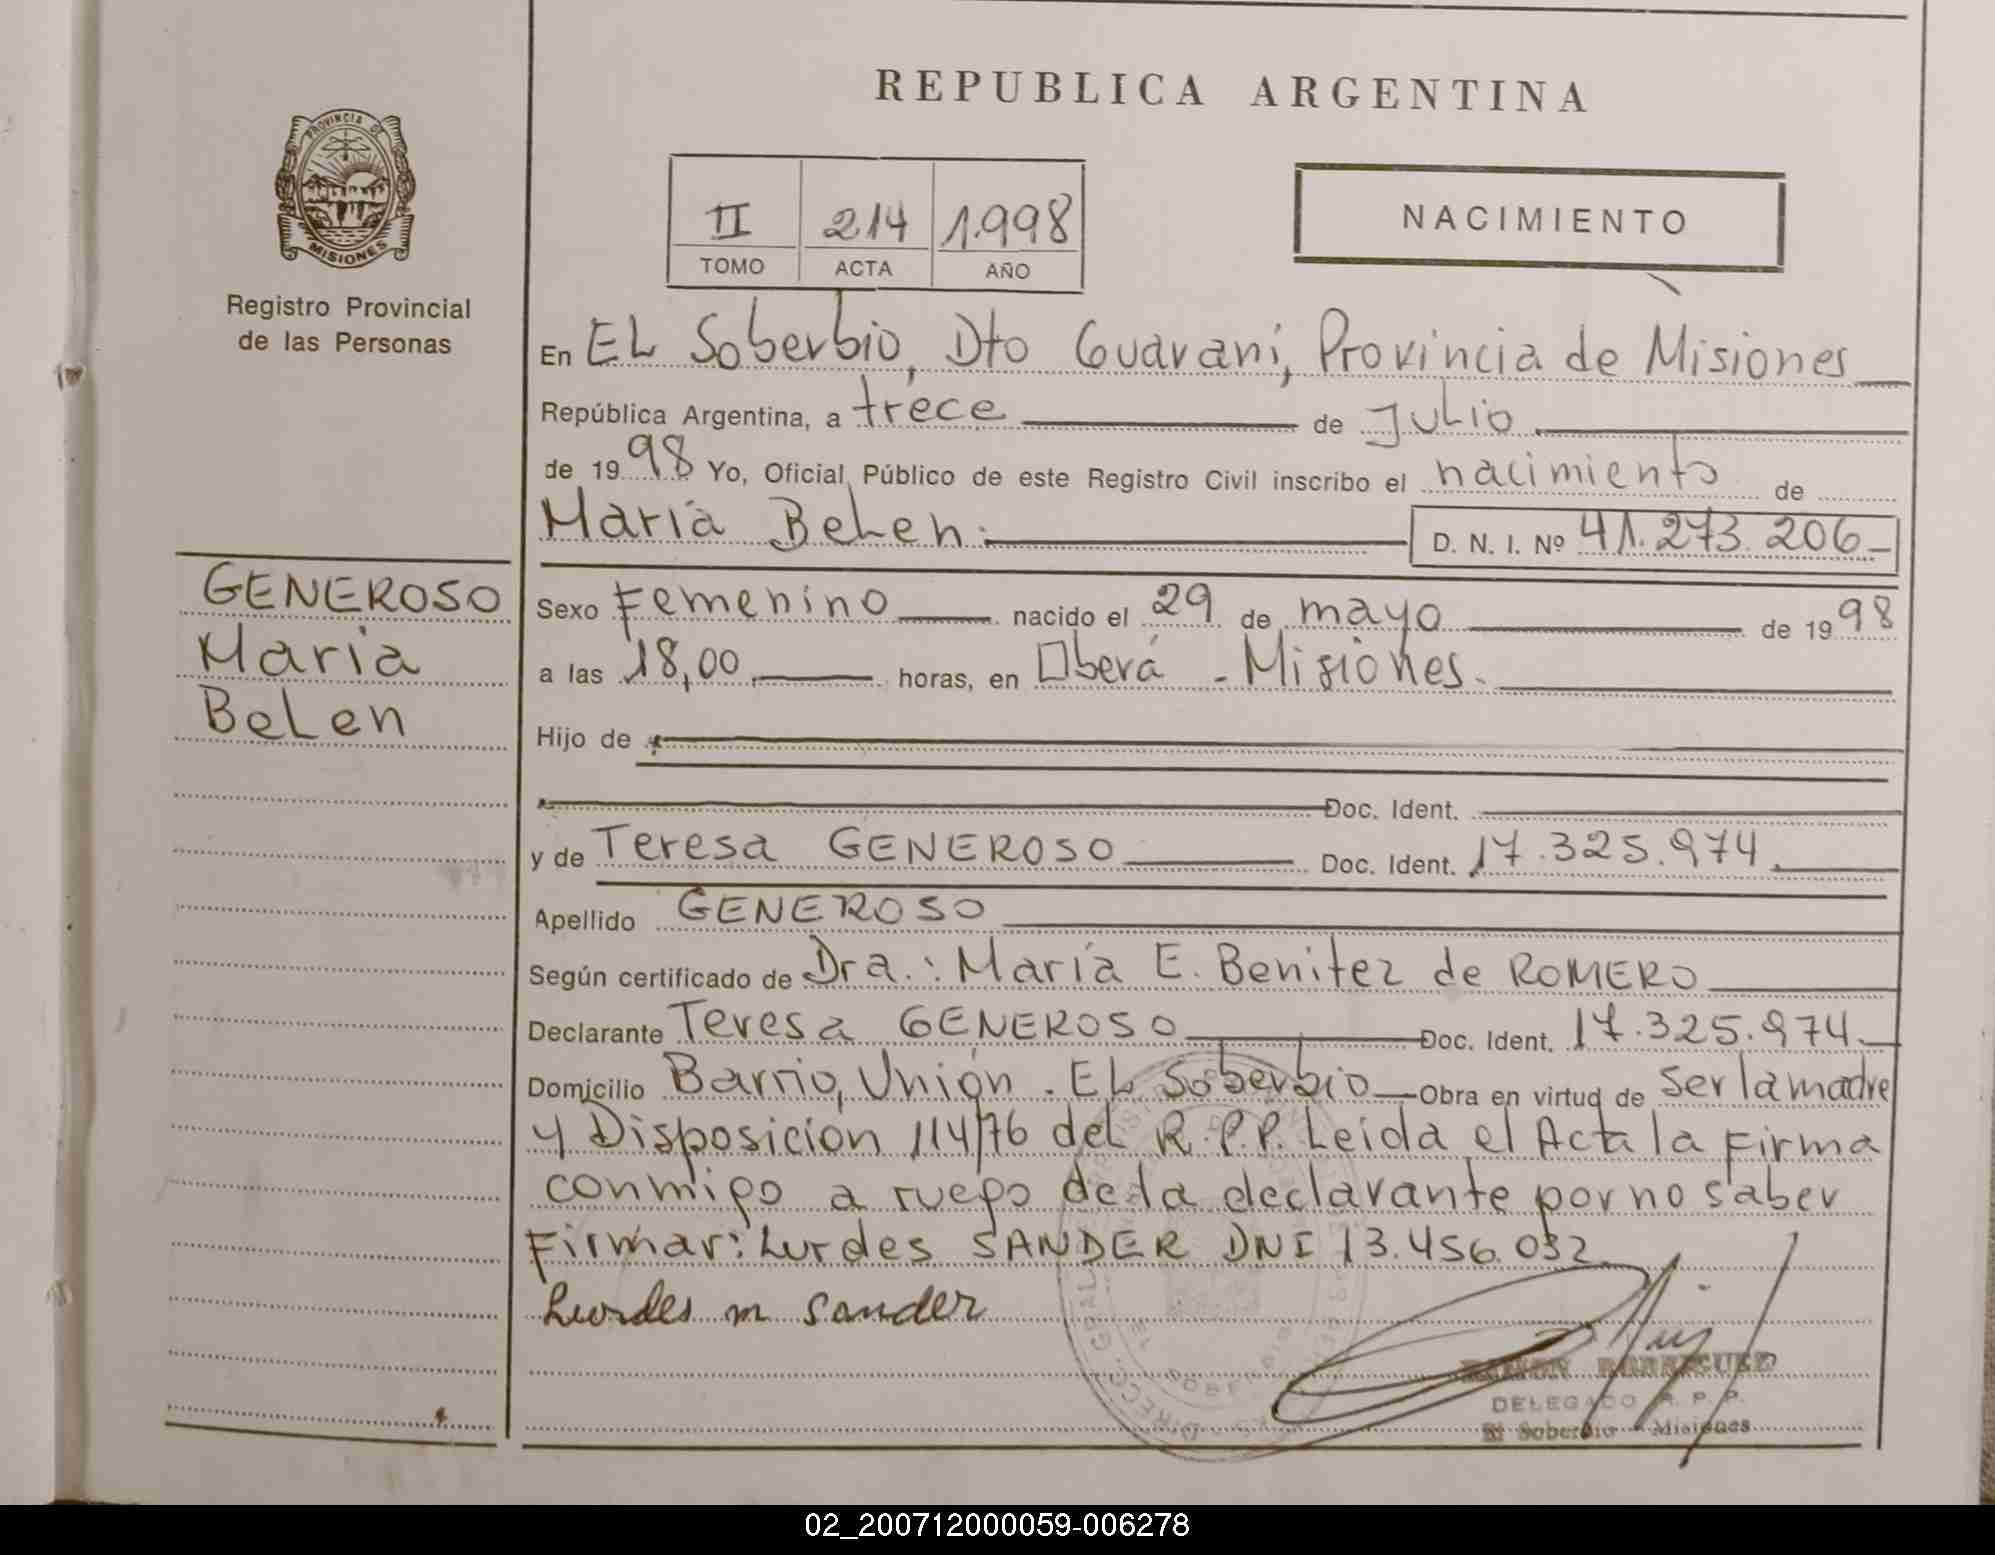 REPUBLICA ARGENTINA
PROVINCIA DE
MISIONES
Registro Provincial
de las Personas
II 214 1.998
TOMO ACTA AÑO
NACIMIENTO
En EL Soberbio, Dto Guarani, Provincia de Misiones
República Argentina, a trece de Julio
de 1998 Yo, Oficial Público de este Registro Civil inscribo el nacimiento de
María Belen. D. N. I. Nº 41.273.206
GENEROSO
Maria
Belen
Sexo Femenino nacido el 29 de mayo de 1998
a las 18,00 horas, en Oberá - Misiones.
Hijo de
Doc. Ident.
y de Teresa GENEROSO Doc. Ident. 17.325.974.
Apellido GENEROSO
Según certificado de Dra.: María E. Benitez de ROMERO
Declarante Teresa GENEROSO Doc. Ident. 17.325.974.
Domicilio Barrio, Unión. EL Soberbio Obra en virtud de ser la madre
y Disposicion 114/76 del R.P.P. Leida el Acta la Firma
conmigo a ruego de la declarante por no saber
Firmar: Lurdes SANDER DNI 13.456.032
Lurdes m sander
RAMON RODRIGUEZ
DELEGADO R. P. P.
El Soberbio - Misiones
02_200712000059-006278